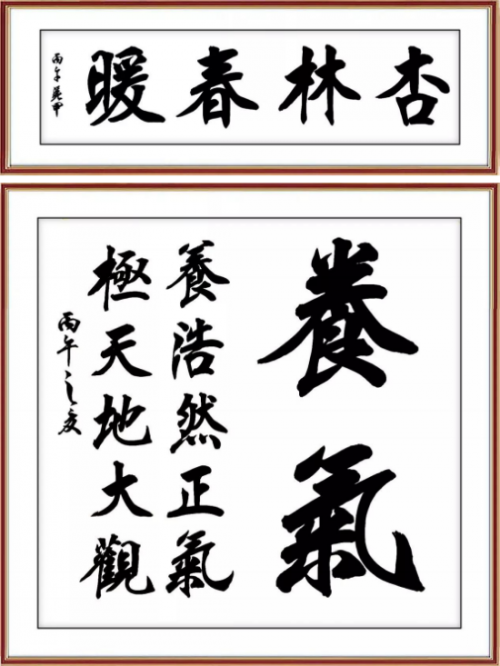 杏林春暖
丙午
養氣
養浩然正氣
極天地大觀
丙午之夏